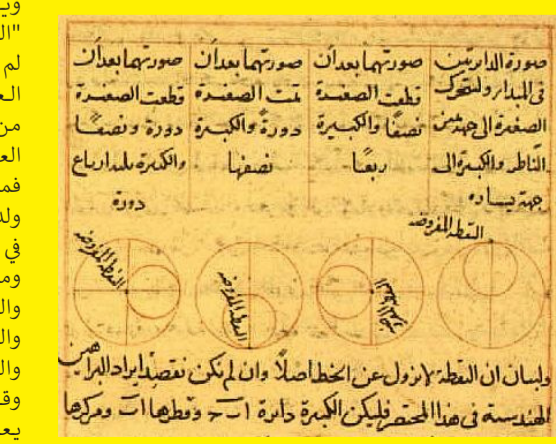 صورة الدايرتين
في المبدا ولتتحرك
الصغيرة الى جهة يمين
الناظر والكبيرة الى
جهة يساره
صورتهما بعد ان
قطعت الصغيرة
نصفا والكبيرة
ربعا
صورتهما بعد ان
تمت الصغيرة
دورة والكبيرة
نصفها
صورتهما بعد ان
قطعت الصغيرة
دورة ونصفا
والكبيرة ثلثة ارباع
دورة
النقطة المفروضة
النقطة المفروضة
النقطة المفروضة
ولبيان ان النقطة لا تزول عن الخط اصلا وان لم نكن نقصد ايراد البراهين
الهندسية في هذا المختصر فليكن الكبيرة دائرة ا ب ح وقطرها ا ب ومركزها
لم
من
في